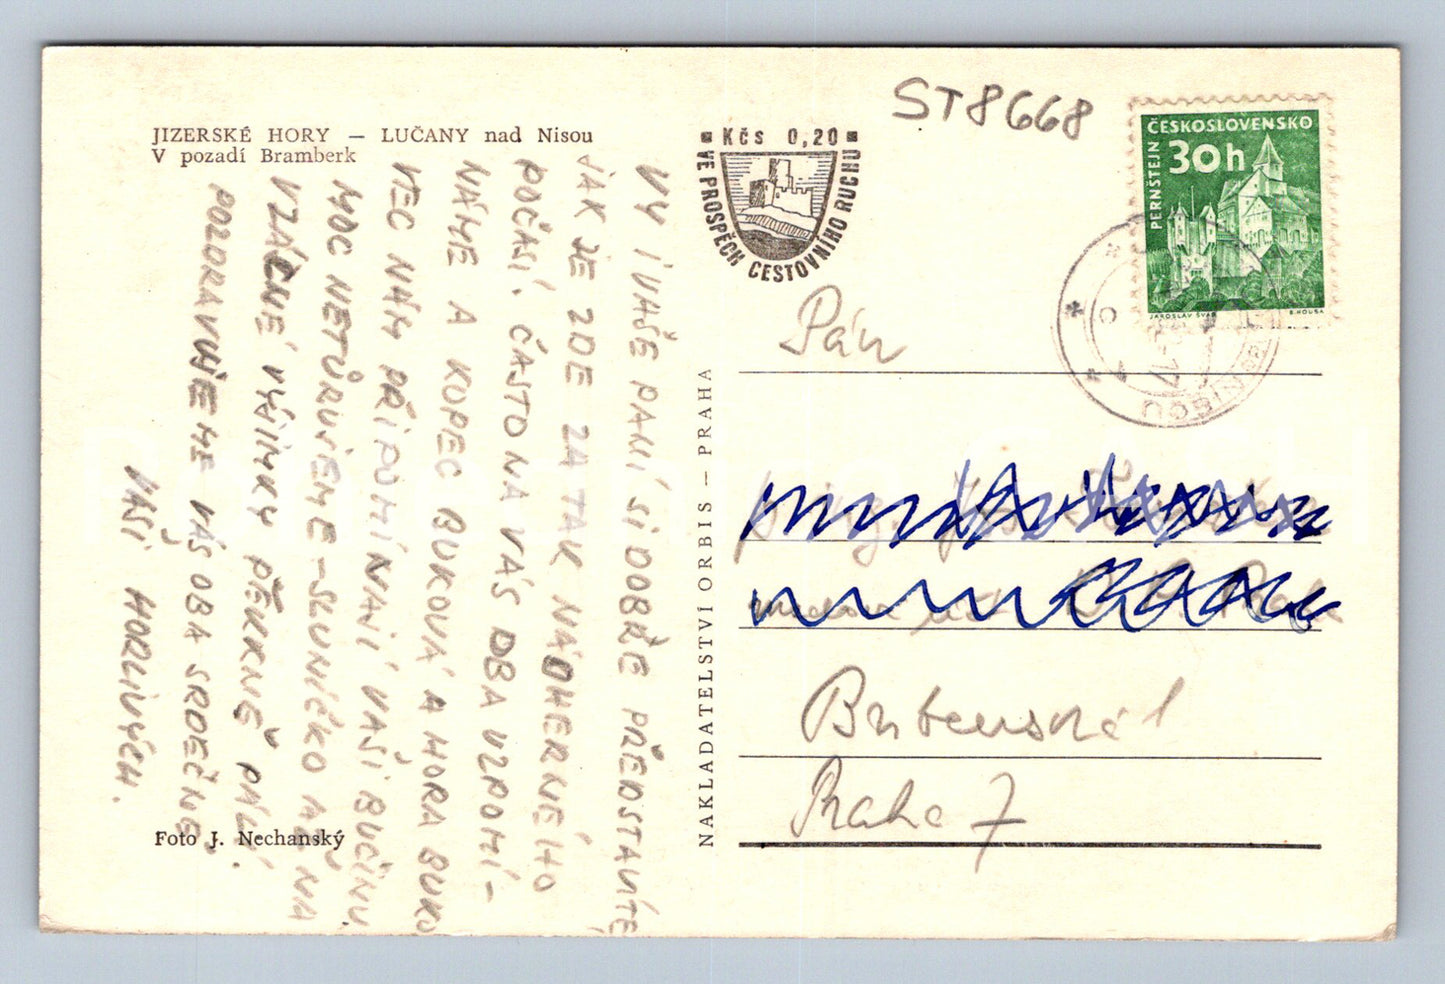 JIZERSKÉ HORY — LUČANY nad Nisou
V pozadí Bramberk
VY I VAŠE PANÍ SI DOBŘE PŘEDSTAVÍTE
JAK JE ZDE ZA TAK NÁDHERNÉHO
POČASÍ. ČASTO NA VÁS OBA VZPOMÍ-
NÁME A KOPEC BUKOVÁ A HORA BUKO
VEC NÁM PŘIPOMÍNAJÍ VAŠI BUČINU
MOC NETÚRUJEME - SLUNÍČKO AŽ NA
VZÁCNÉ VÝJIMKY PĚKNĚ PÁLÍ.
POZDRAVUJEME VÁS OBA SRDEČNĚ
VAŠI HORLIVÝCH.
Foto J. Nechanský
NAKLADATELSTVÍ ORBIS — PRAHA
Kčs 0,20
VE PROSPĚCH CESTOVNÍHO RUCHU
ST8668
ČESKOSLOVENSKO
30h
PERNŠTEJN
JAROSLAV ŠVÁB
B. HOUSA
Pán
Praha 7